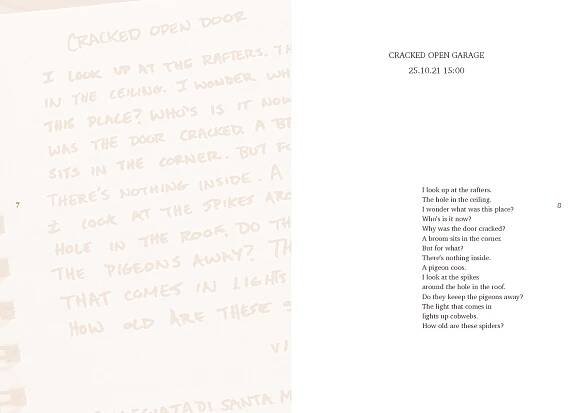 CRACKED OPEN DOOR
I LOOK UP AT THE RAFTERS. TH
IN THE CEILING. I WONDER WH
THIS PLACE? WHO'S IS IT NOW
WAS THE DOOR CRACKED. A B
SITS IN THE CORNER. BUT FO
THERE'S NOTHING INSIDE. A
I LOOK AT THE SPIKES ARO
HOLE IN THE ROOF. DO TH
THE PIGEONS AWAY? TH
THAT COMES IN LIGHTS
HOW OLD ARE THESE S
VI
DI SANTA M
7
CRACKED OPEN GARAGE
25.10.21 15:00
I look up at the rafters.
The hole in the ceiling.
I wonder what was this place?
Who's is it now?
Why was the door cracked?
A broom sits in the corner.
But for what?
There's nothing inside.
A pigeon coos.
I look at the spikes
around the hole in the roof.
Do they keeep the pigeons away?
The light that comes in
lights up cobwebs.
How old are these spiders?
8